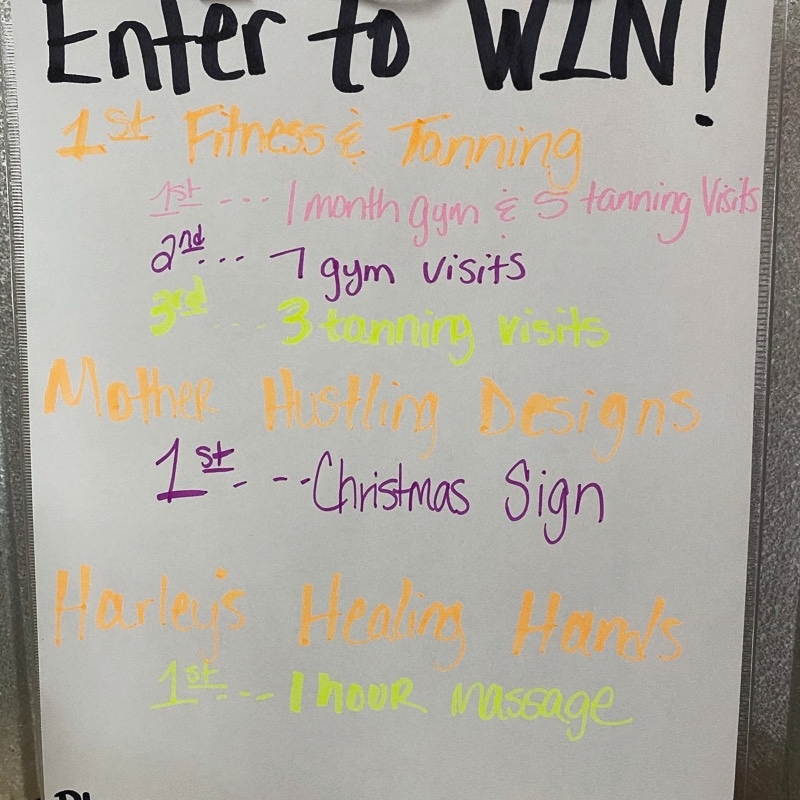 Enter to WIN!
1st Fitness & Tanning
1st --- 1 month gym & 5 tanning Visits
2nd... 7 gym visits
3rd ... 3 tanning visits
Mother Hustling Designs
1st - --Christmas Sign
Harley's Healing Hands
1st --- 1 hour massage